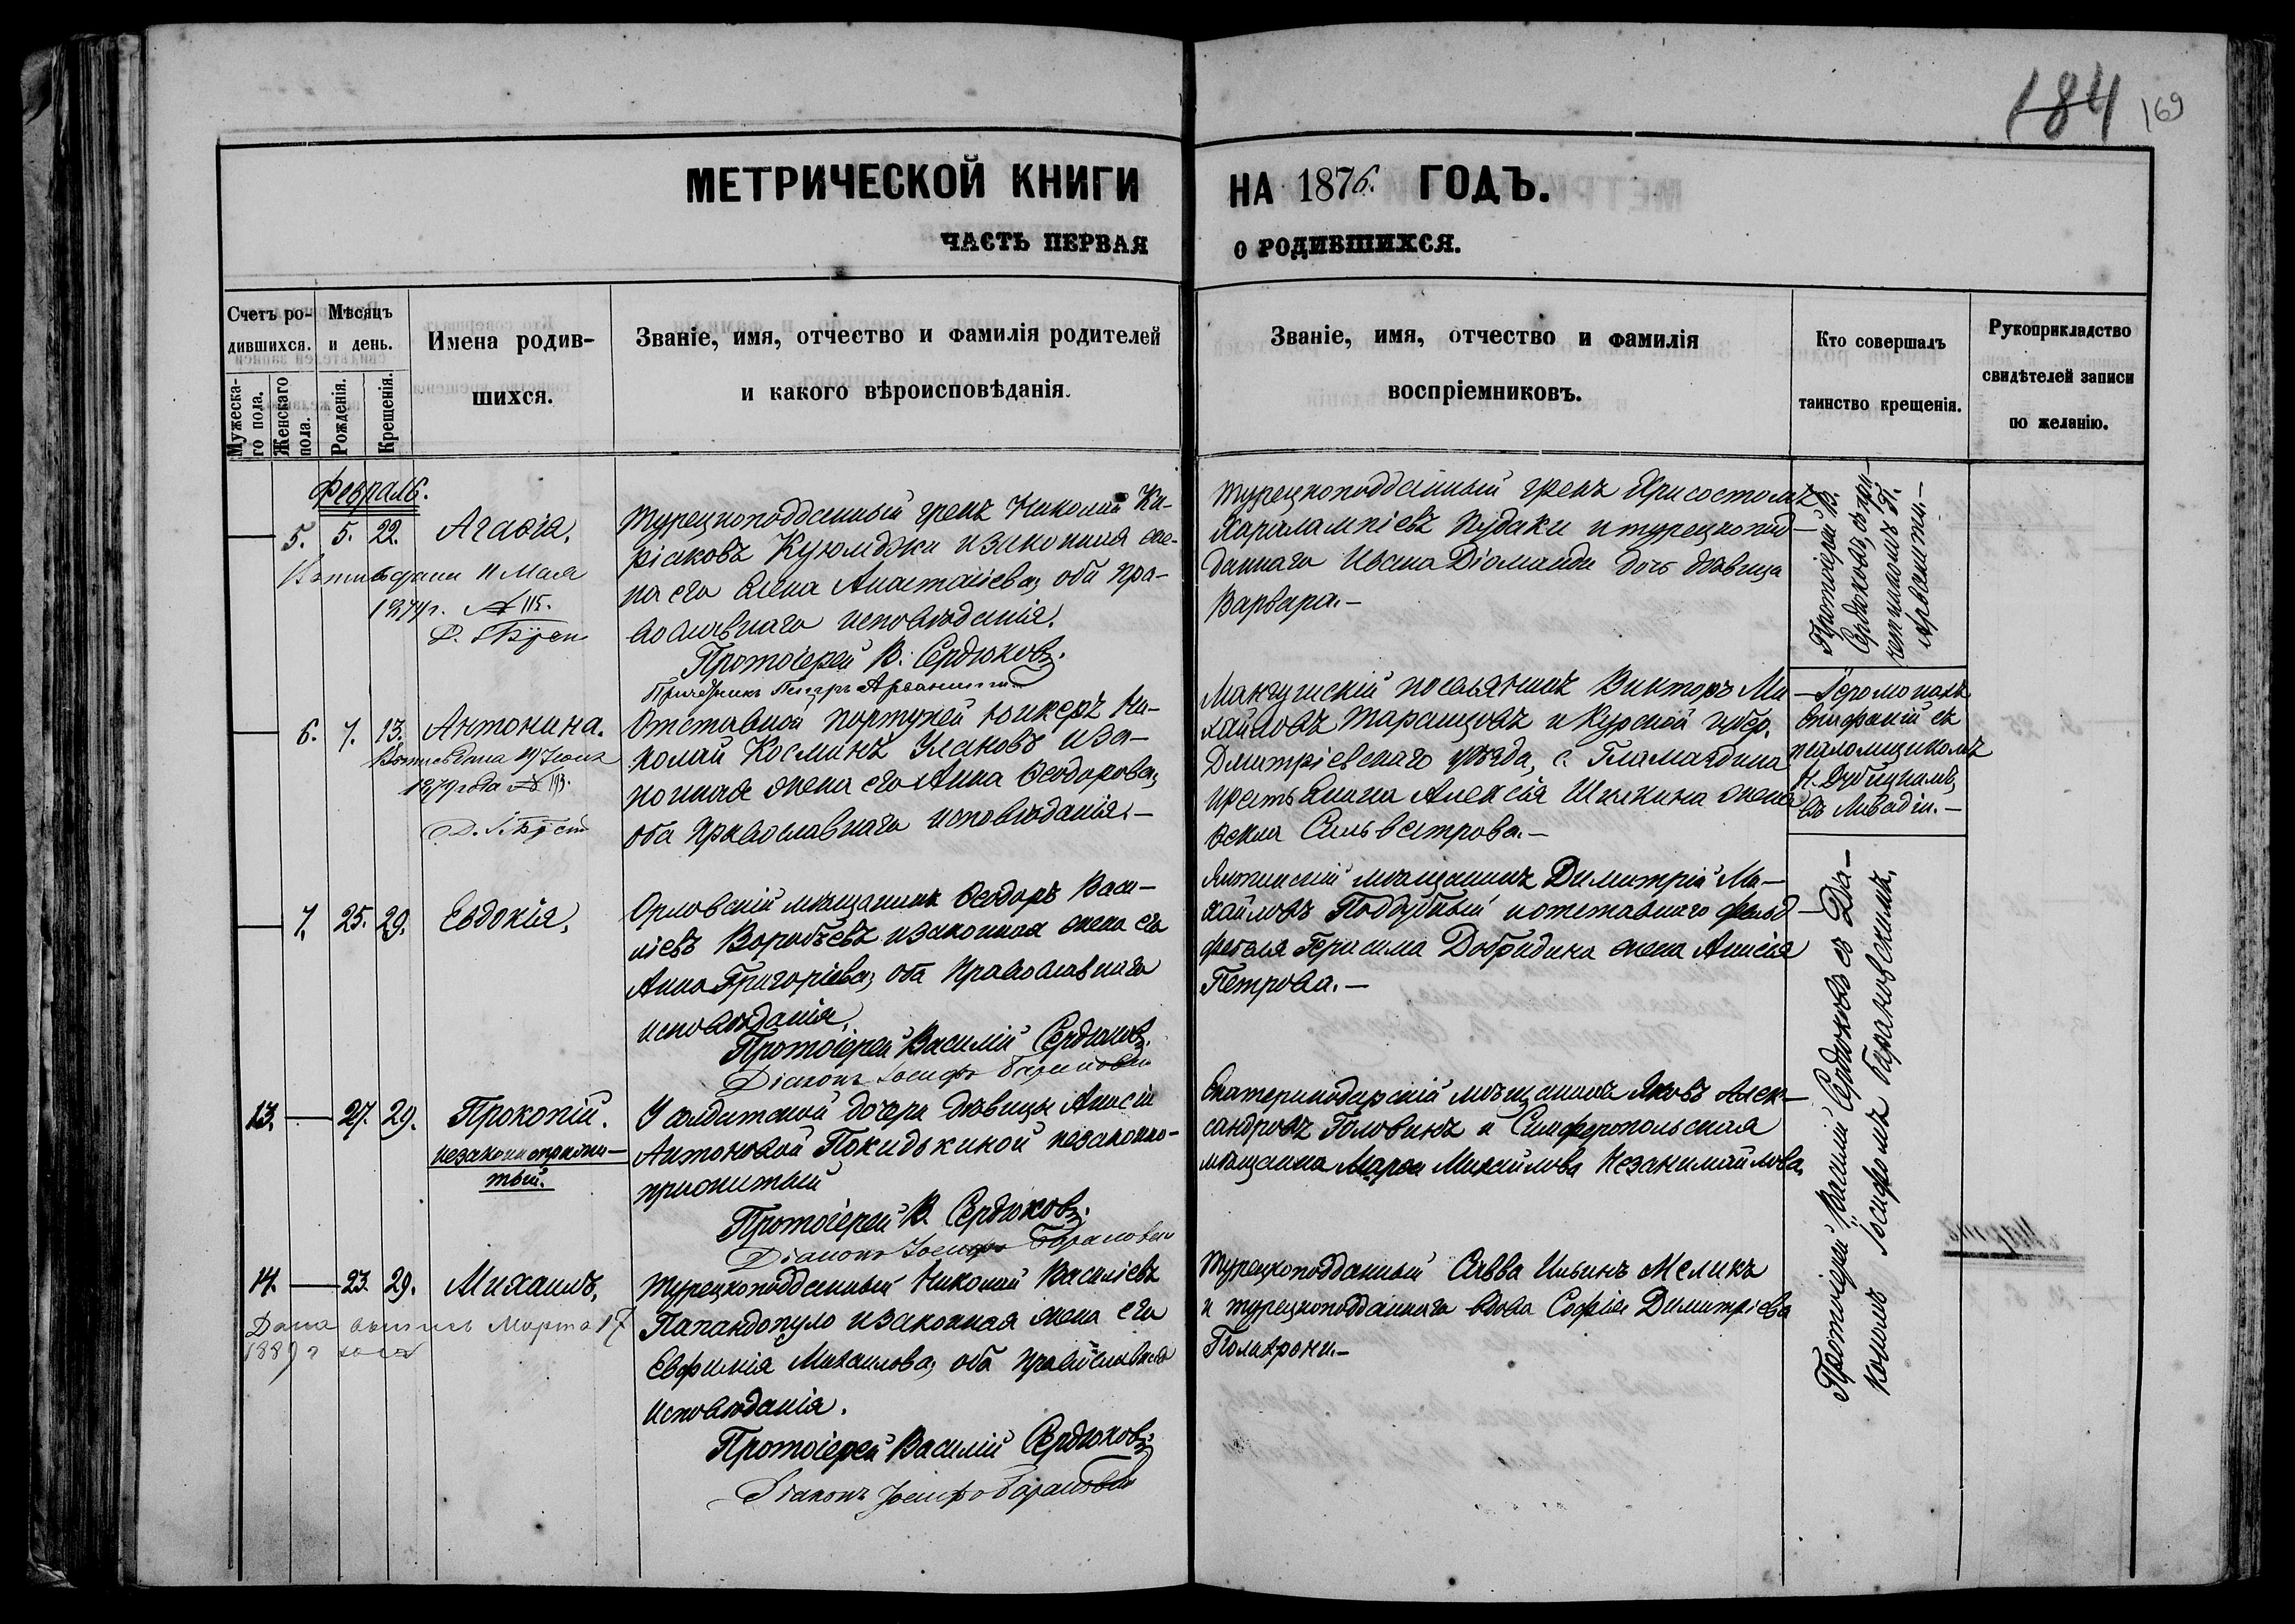 184 169
МЕТРИЧЕСКОЙ КНИГИ НА 1876. ГОДЪ.
ЧАСТЬ ПЕРВАЯ О РОДИВШИХСЯ.
Счетъ ро-
дившихся.
Мужеска-
го пола.
Женскаго
пола.
Мѣсяцъ
и день.
Рожденія.
Крещенія.
Имена родив-
шихся.
Званіе, имя, отчество и фамилія родителей
и какого вѣроисповѣданія.
Званіе, имя, отчество и фамилія
воспріемниковъ.
Кто совершалъ
таинство крещенія.
Рукоприкладство
свидѣтелей записи
по желанію.
Февраль.
5. 5. 22. Агаѳія.
11 Мая
187 г. № 115.
Турецкоподданный грекъ Николай Ки-
ріаковъ Куюмджи и законная же-
на его Елена Анастасіева, оба пра-
вославнаго исповѣданія.
Протоіерей В. Сердюковъ.
Петръ Арванити
Турецкоподданный грекъ Хрисостомъ
Харалампіевъ Пудаки и турецкопод-
даннаго Ивана Діоманди дочь дѣвица
Варвара.—
Протоіерей В.
Сердюковъ, съ при-
четникомъ П.
Арванити.—
6. 7. 13. Антонина.
1879 года № 193.
Отставной портупей юнкеръ Ни-
колай Косминъ Улановъ и за-
конная жена его Анна Ѳеодорова,
оба православнаго исповѣданія.—
Мангушскій поселянинъ Викторъ Ми-
хайловъ Таранцовъ и Курской губер.
Дмитріевскаго уѣзда, с. Гламаздина
крестьянина Алексія Шилкина жена
Ѳекла Сильвестрова.—
Іеромонахъ
Епифаній съ
псаломщикомъ
Н. Дубицкимъ,
въ Ливадіи.—
7. 25. 29. Евдокія.
Орловскій мѣщанинъ Ѳеодоръ Васи-
ліевъ Воробьевъ и законная жена его
Анна Григоріева, оба православнаго
исповѣданія.
Протоіерей Василій Сердюковъ.
Діаконъ Іосифъ Барановскій
Ялтинскій мѣщанинъ Димитрій Ми-
хайловъ Поддубный и отставнаго фельд-
фебеля Герасима Добрадина жена Анисія
Петрова.—
Протоіерей Василій Сердюковъ съ Діа-
кономъ Іосифомъ Барановскимъ.
13. 27. 29. Прокопій.
незаконноприжи-
тый.
У солдатской дочери дѣвицы Анисіи
Антоновой Покидькиной незаконно-
прижитый
Протоіерей В. Сердюковъ.
Діаконъ Іосифъ Барановскій
Екатеринодарскій мѣщанинъ Яковъ Алек-
сандровъ Головинъ и Симферопольская
мѣщанка Марѳа Михайлова Незанимайлова.
14. 23. 29. Михаилъ.
Дана выпись Марта 17
188 г
Турецкоподданный Николай Василіевъ
Папандопуло и законная жена его
Евфимія Михаилова, оба православнаго
исповѣданія.
Протоіерей Василій Сердюковъ.
Діаконъ Іосифъ Барановскій
Турецкоподданный Савва Ильинъ Меликъ
и турецкоподданнаго вдова Софія Димитріева
Полихрони.—